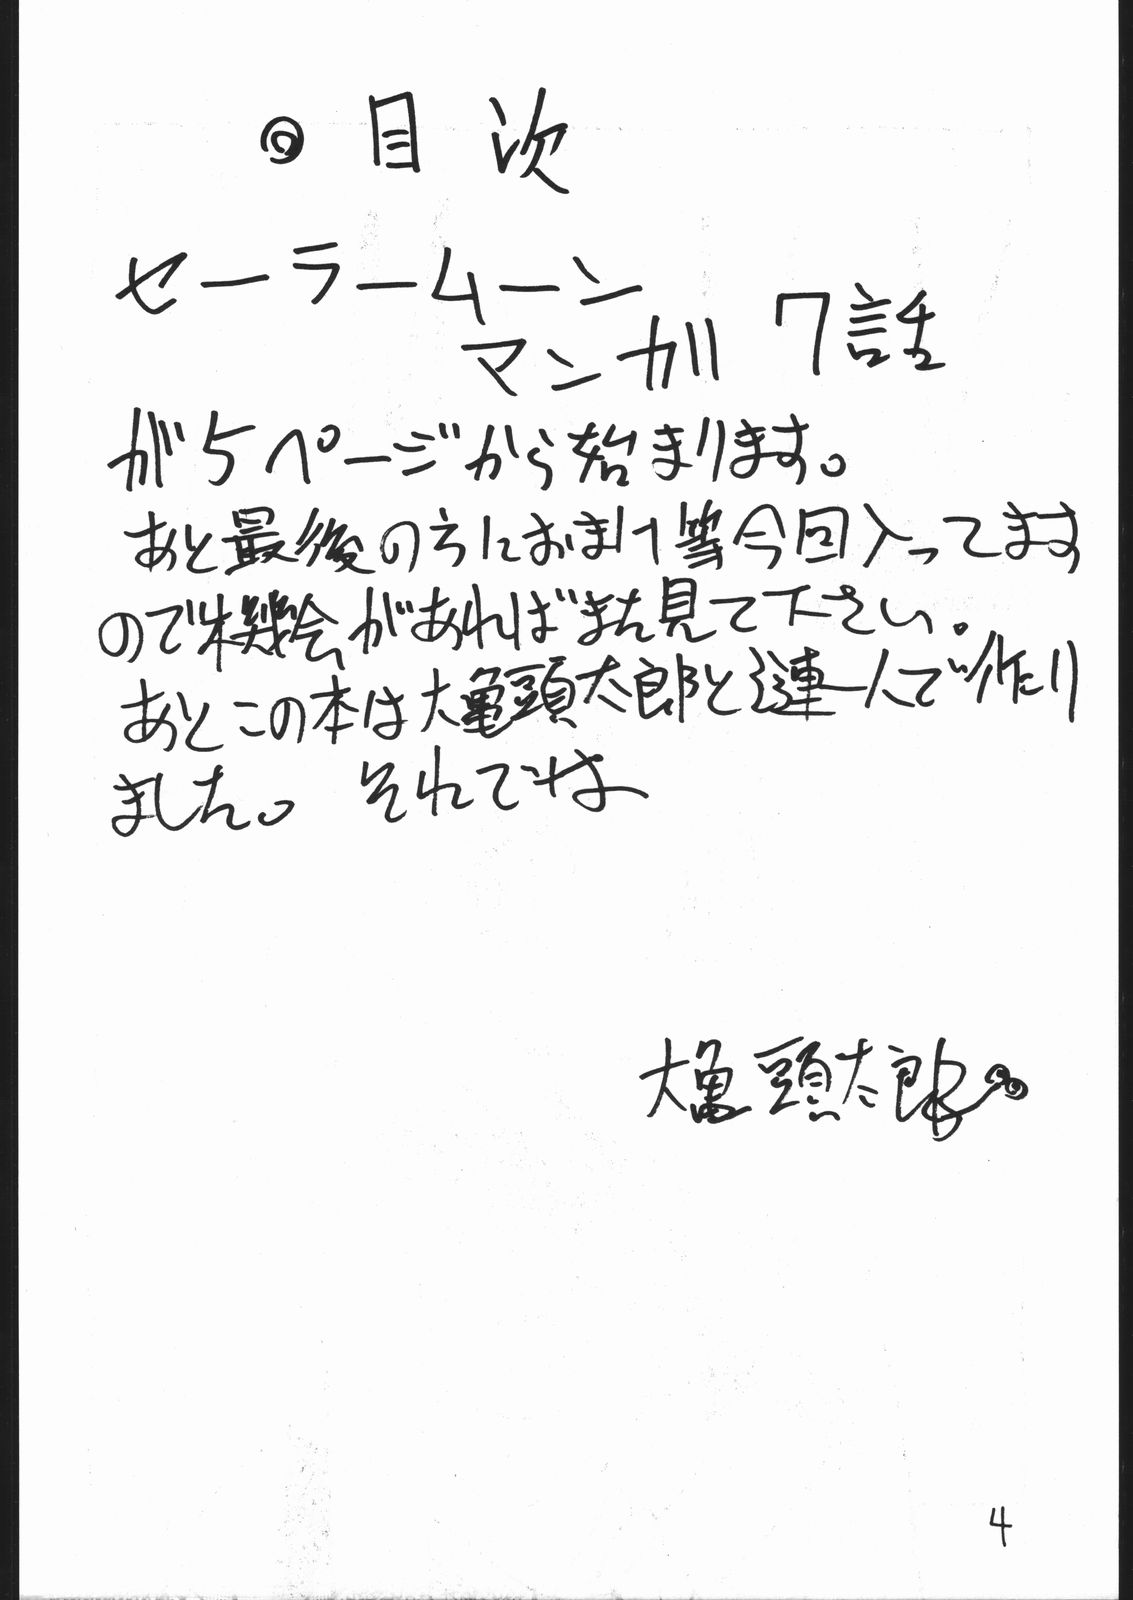 ◎目次
セーラームーン
マンガ 7話
が5ページから始まります。
あと最後の方におまけ等今回入ってます
ので機会があればまた見て下さい。
あとこの本は大亀頭太郎と漣一人で作り
ました。 それでは
大亀頭太郎
4